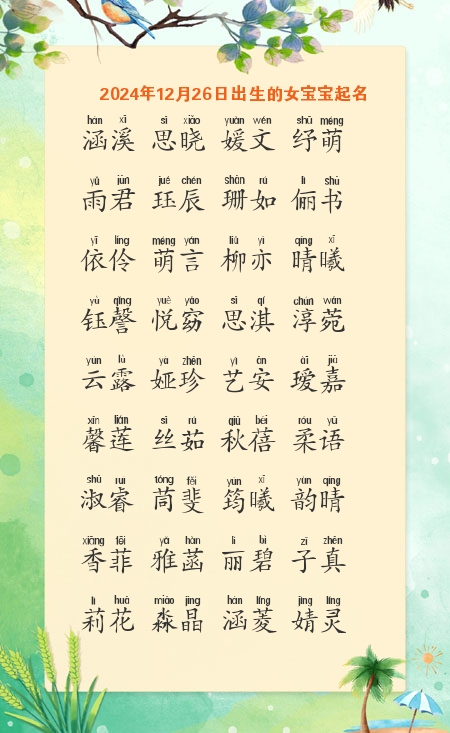 2024年12月26日出生的女宝宝起名
hán xī sī xiǎo yuàn wén shū méng
涵溪 思晓 媛文 纾萌
yǔ jūn jué chén shān rú lì shū
雨君 珏辰 珊如 俪书
yī líng méng yán liǔ yì qíng xī
依伶 萌言 柳亦 晴曦
yù qǐng yuè yǎo sī qí chún wǎn
钰謦 悦窈 思淇 淳菀
yún lù yà zhēn yì ān ài jiā
云露 娅珍 艺安 瑷嘉
xīn lián sī rú qiū bèi róu yǔ
馨莲 丝茹 秋蓓 柔语
shū ruì tóng fěi yún xī yùn qíng
淑睿 茼斐 筠曦 韵晴
xiāng fēi yǎ hàn lì bì zǐ zhēn
香菲 雅菡 丽碧 子真
lì huā miǎo jīng hán líng jìng líng
莉花 淼晶 涵菱 婧灵